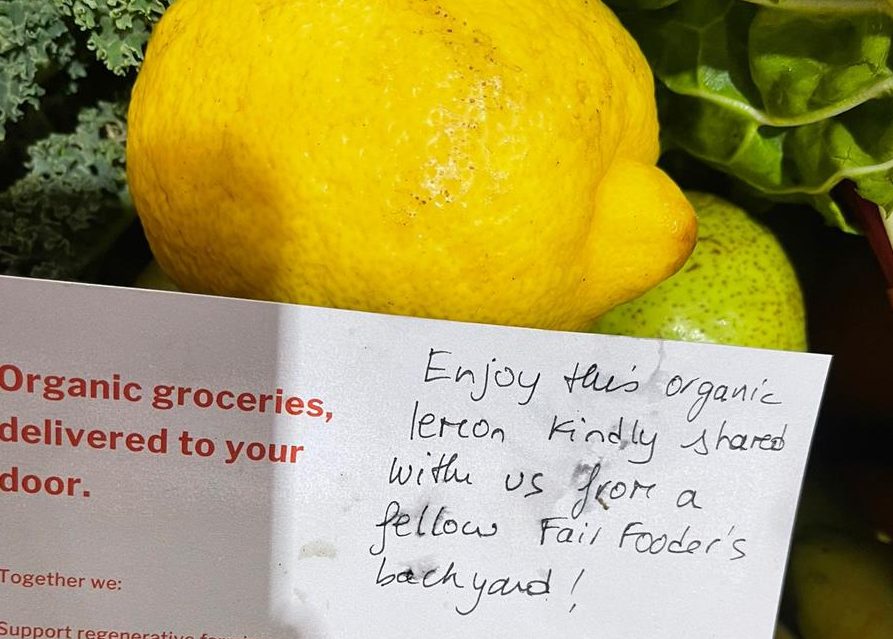 Organic groceries,
delivered to your
door.
Together we:
Support regenerative
Enjoy this organic
lemon kindly shared
with us from a
fellow Fair Fooder's
backyard!